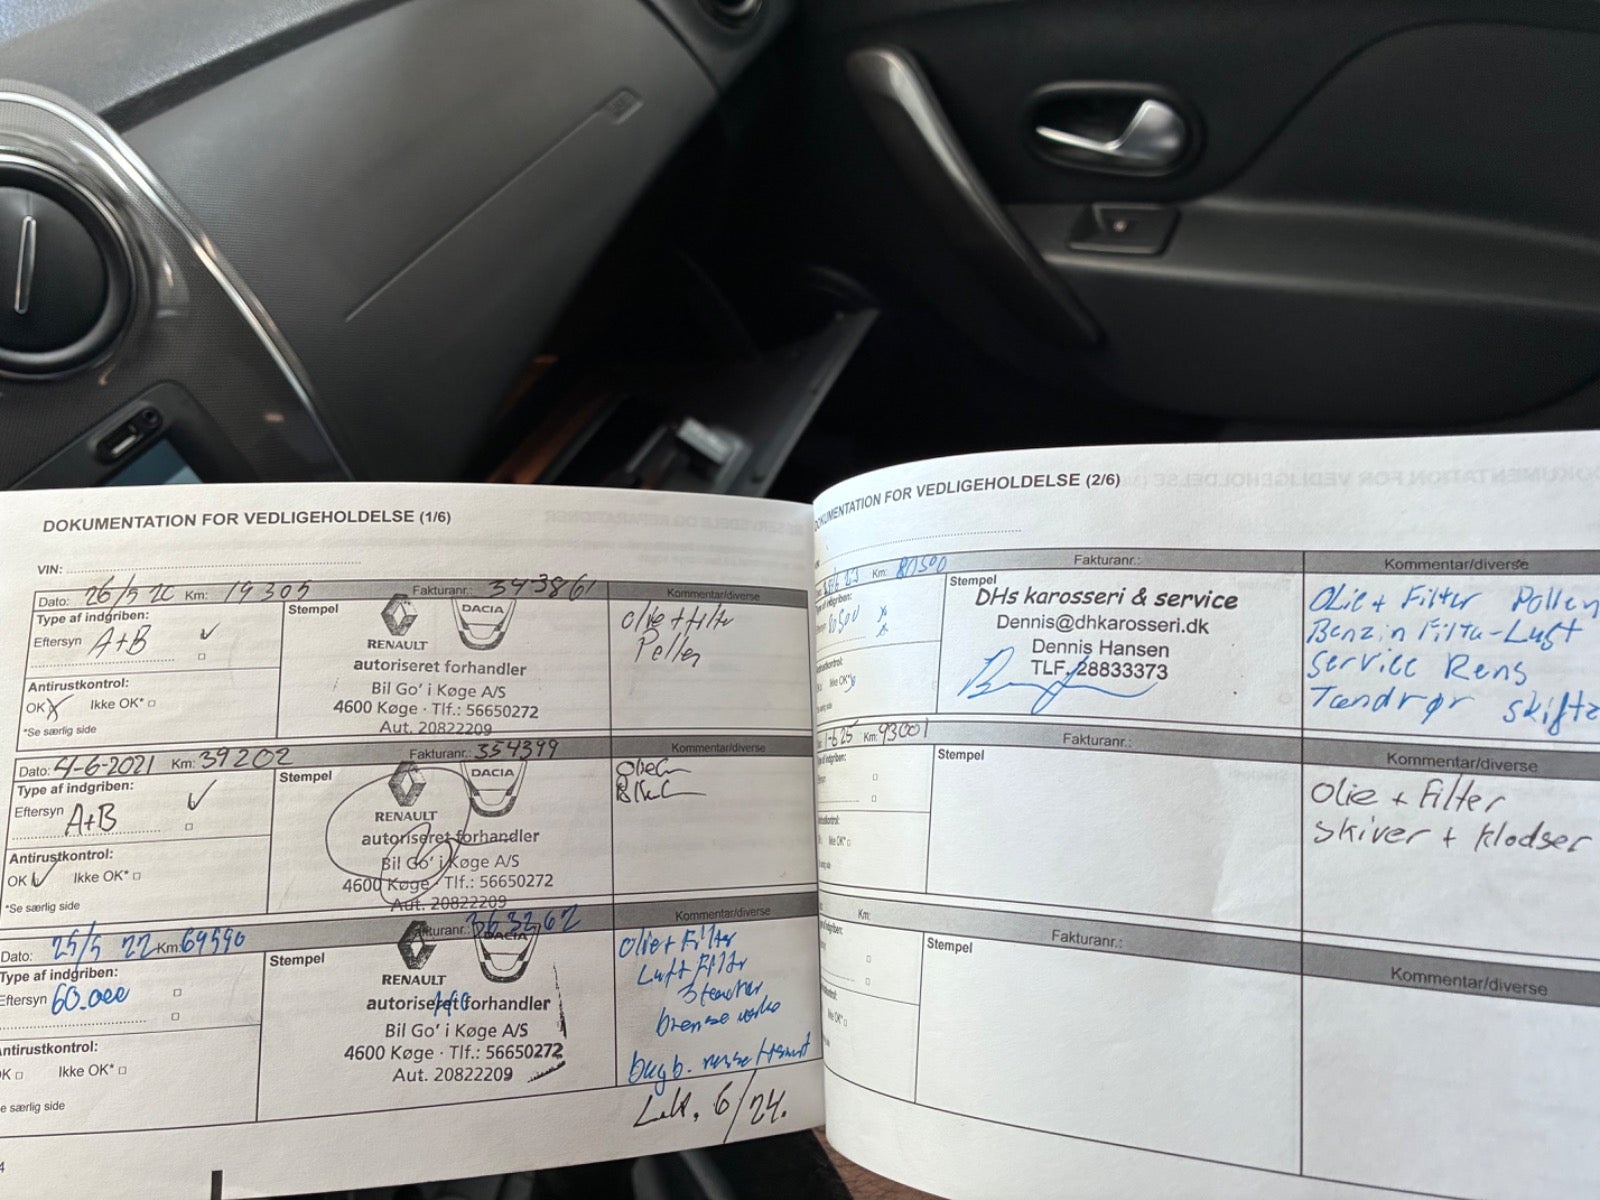 DOKUMENTATION FOR VEDLIGEHOLDELSE (1/6)
VIN:
Dato: 26/5 20 Km: 19305 Fakturanr.: 343861 Kommentar/diverse
Type af indgriben:
Eftersyn A+B
Antirustkontrol:
OK Ikke OK*
*Se særlig side
Stempel
RENAULT DACIA
autoriseret forhandler
Bil Go' i Køge A/S
4600 Køge · Tlf.: 56650272
Aut. 20822209
olie + filtr
Pollen
Dato: 4-6-2021 Km: 39202 Fakturanr.: 354399 Kommentar/diverse
Type af indgriben:
Eftersyn A+B
Antirustkontrol:
OK Ikke OK*
*Se særlig side
Stempel
RENAULT DACIA
autoriseret forhandler
Bil Go' i Køge A/S
4600 Køge · Tlf.: 56650272
Aut. 20822209
Dato: 25/5 22 Km: 69590 Fakturanr.: 363262 Kommentar/diverse
Type af indgriben:
Eftersyn 60.000
Antirustkontrol:
OK Ikke OK*
Se særlig side
Stempel
RENAULT DACIA
autoriseret forhandler
Bil Go' i Køge A/S
4600 Køge · Tlf.: 56650272
Aut. 20822209
Olie + Filtr
Luft Filtr
bremse
6/24.
4
DOKUMENTATION FOR VEDLIGEHOLDELSE (2/6)
Km: 80500 Fakturanr.: Kommentar/diverse
Type af indgriben:
80500
Ikke OK*
Stempel
DHs karosseri & service
Dennis@dhkarosseri.dk
Dennis Hansen
TLF. 28833373
Olie + Filter Pollen
Benzin Filtr - Luft
Service Rens
Tændrør skifte
1-6 25 Km: 93001 Fakturanr.: Kommentar/diverse
Stempel
Olie + Filter
Skiver + Klodser
Km: Fakturanr.: Kommentar/diverse
Stempel